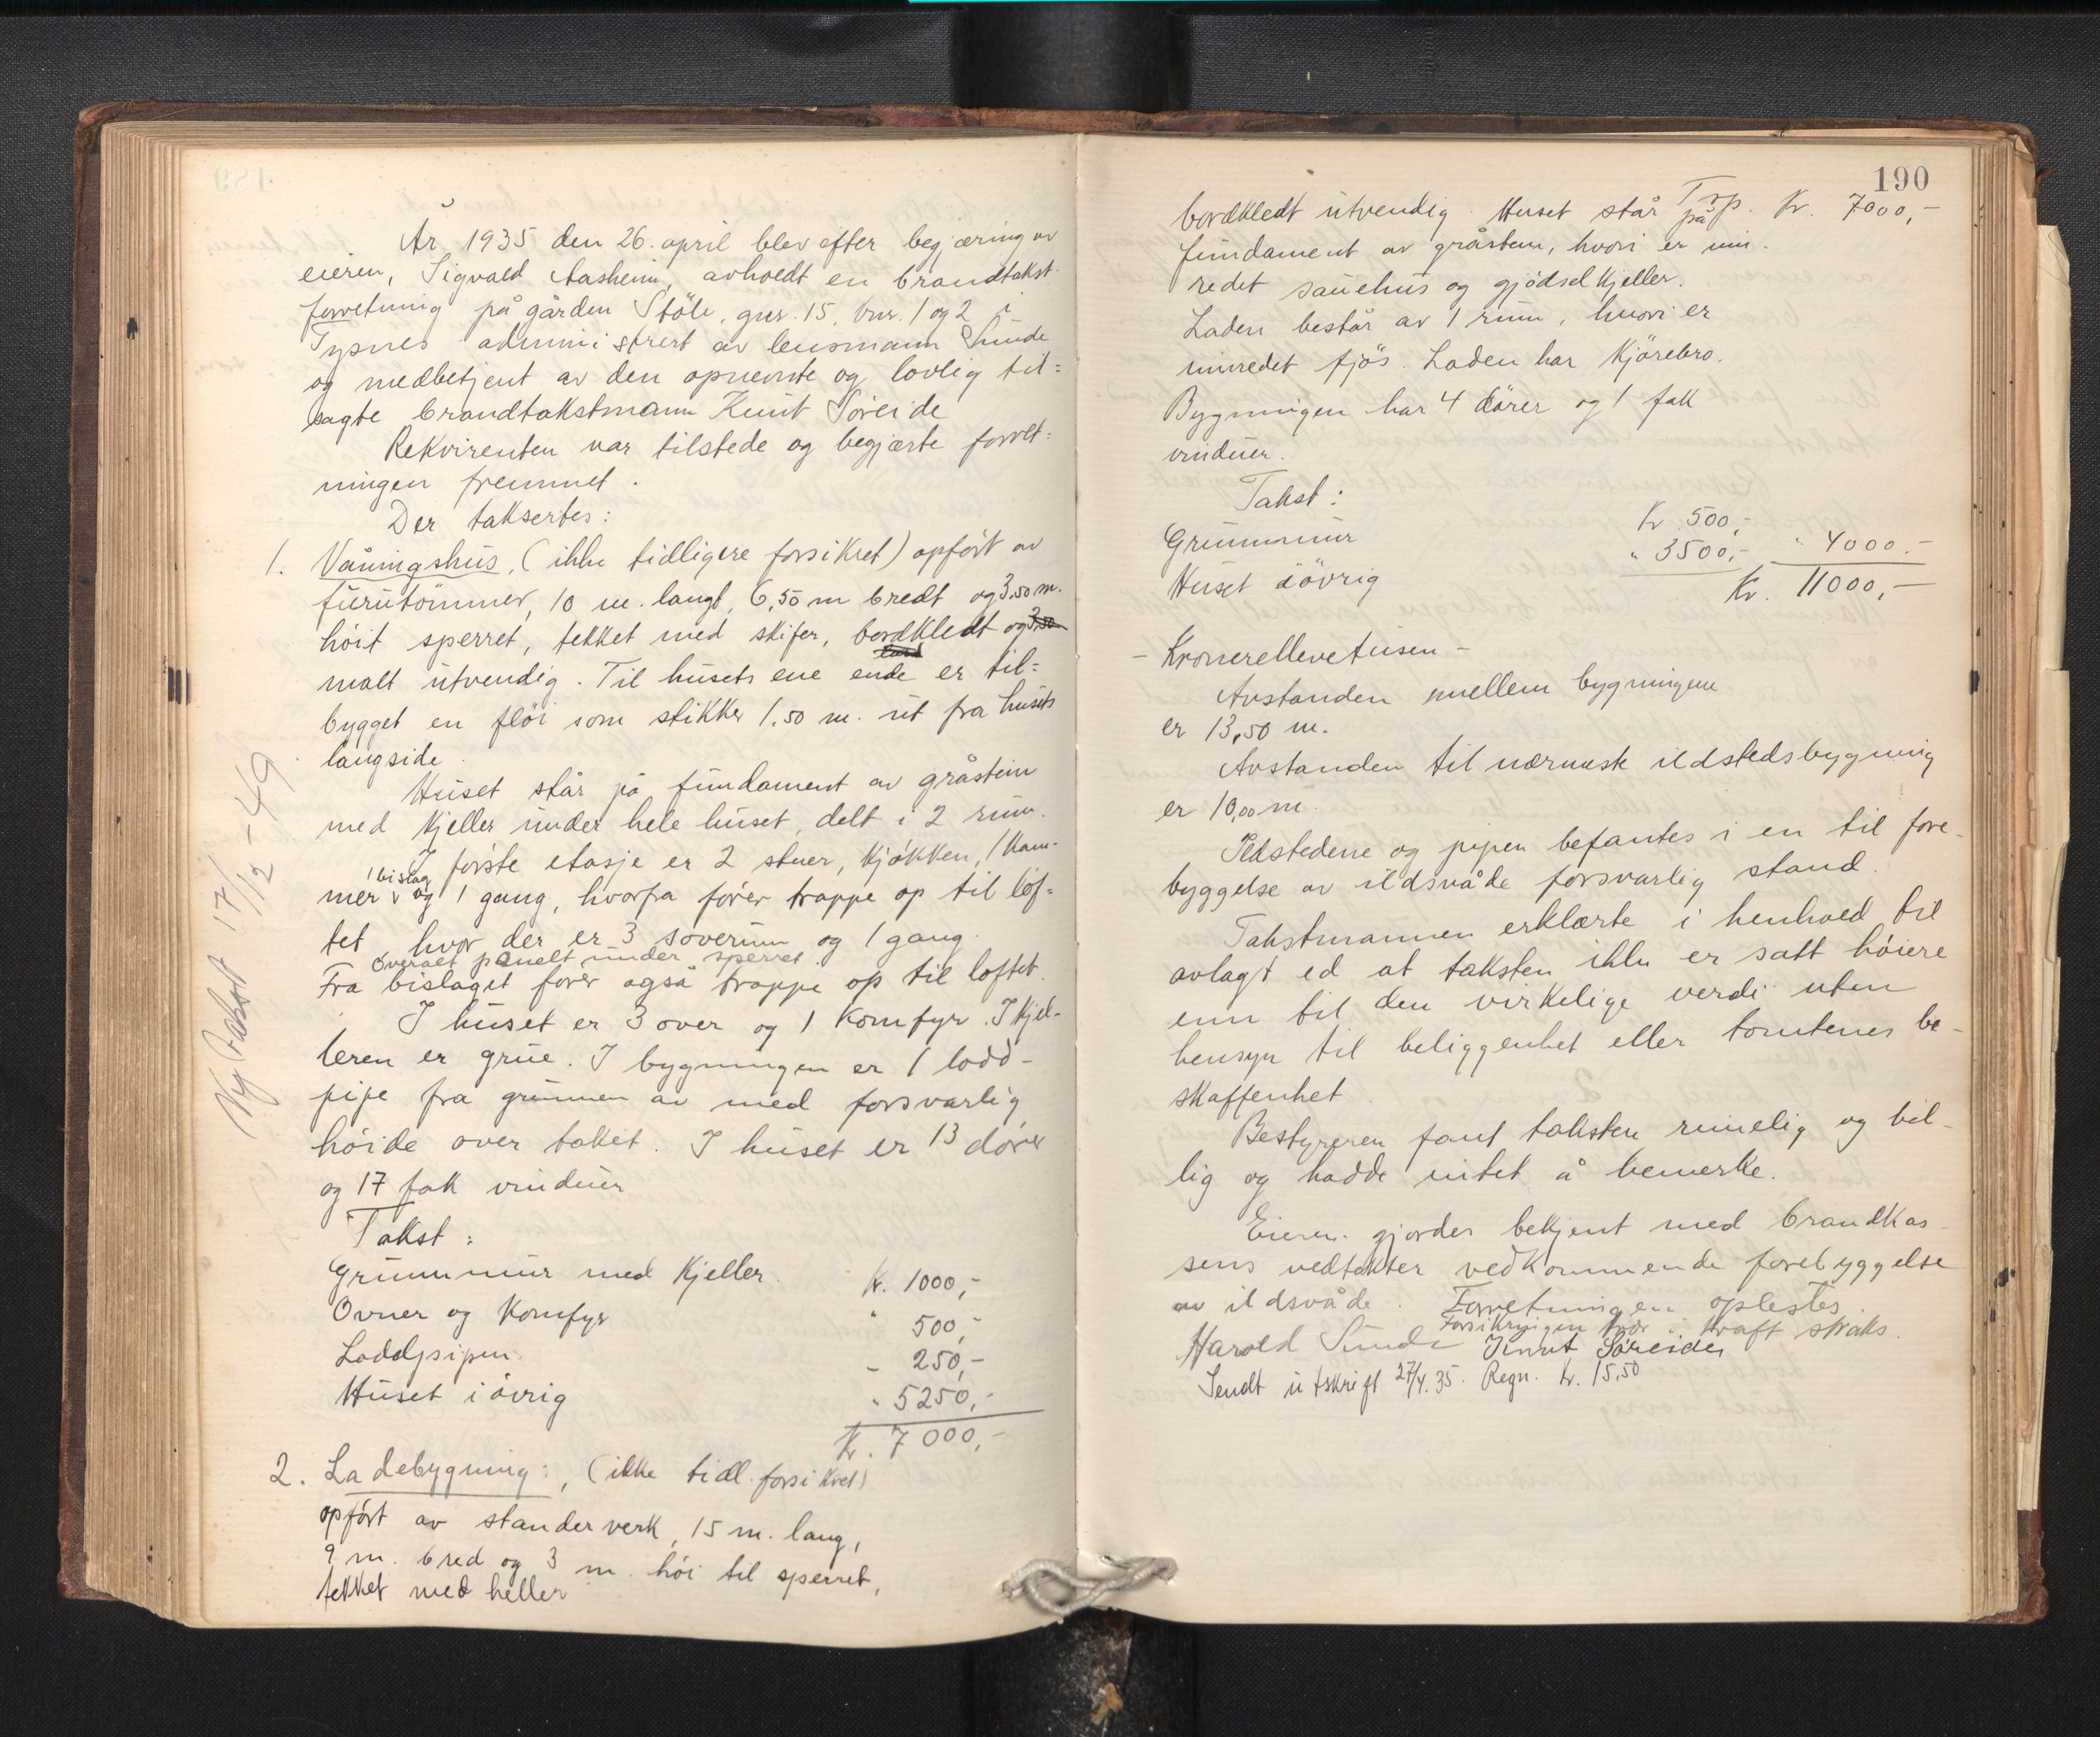 År 1935 den 26. april blev efter begjæring av
eieren, Sigvald Aasheim, avholdt en brandtakst-
forretning på gården Støle, gnr. 15, bnr. 1 og 2 i
Tysnes administrert av lensmann Sunde
og medbetjent av den opnevnte og lovlig til=
sagte brandtakstmann Knut Söreide
Rekvirenten var tilstede og begjærte forret=
ningen fremmet.
Der taksertes:
1. Våningshus, (ikke tidligere forsikret) opført av
furutömmer, 10 m. langt, 6,50 m bredt og 3,50 m.
höit sperret, tekket med skifer, bordkledt og
malt utvendig. Til husets ene ende er til=
bygget en flöi som stikker 1.50 m. ut fra husets
langside.
Huset står på fundament av gråstein
med kjeller under hele huset, delt i 2 rum.
I förste etasje er 2 stuer, kjökken, 1 kam-
mer 1 bislag og 1 gang, hvorfra förer trappe op til lof=
tet, hvor der er 3 soverum og 1 gang.
Overalt panelt under sperret.
Fra bislaget förer også trappe op til loftet.
I huset er 3 over og 1 komfyr. I kjel-
leren er grue. I bygningen er 1 lodd-
pipe fra grunnen av med forsvarlig
höide over taket. I huset er 13 dörer
og 17 fak vinduer
Takst:
Grunnmur med kjeller. Kr. 1000,-
Ovner og komfyr " 500,-
Loddpipen - 250,-
Huset i övrig " 5250,-
Kr. 7000,-
2. Ladebygning:, (ikke tidl. forsikret)
opfört av standerverk, 15 m. lang,
9 m. bred og 3 m. höi til sperret,
tekket med heller
Ny takst 17/12-49
190
Trp. Kr. 7000,-
bordkledt utvendig. Huset står på
fundament av gråsten, hvori er inn-
redet sauehus og gjödselkjeller.
Laden består av 1 rum, hvori er
innredet fjös. Laden har kjörebro.
Bygningen har 4 dörer og 1 fak
vinduer.
Takst:
Grunnmur Kr 500,-
Huset iövrig " 3500,- " 4000.-
Kr. 11000,-
- Kronerellevetusen -
Avstanden mellem bygningene
er 13,50 m.
Avstanden til nærmeste ildstedsbygning
er 10,00 m.
Ildstedene og pipen befantes i en til fore-
byggelse av ildsvåde forsvarlig stand.
Takstmannen erklærte i henhold til
avlagt ed at taksten ikke er satt höiere
enn til den virkelige verdi uten
hensyn til beliggenhet eller tomtenes be-
skaffenhet
Bestyreren fant taksten rimelig og bil-
lig og hadde intet å bemerke.
Eieren gjordes bekjent med brandkas-
sens vedtekter vedkommende forebyggelse
av ildsvåde. Forretningen oplestes.
Forsikringen trær i kraft straks.
Harald Sunde Knut Söreide
Sendt utskrift 27/4.35. Regn. kr. 15.50